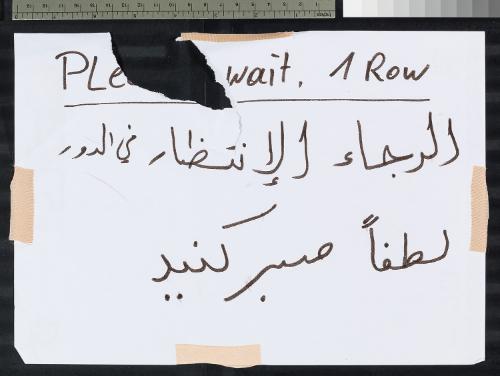 PLe wait. 1 Row
الرجاء الإنتظار في الدور
لطفاً صبر کنید